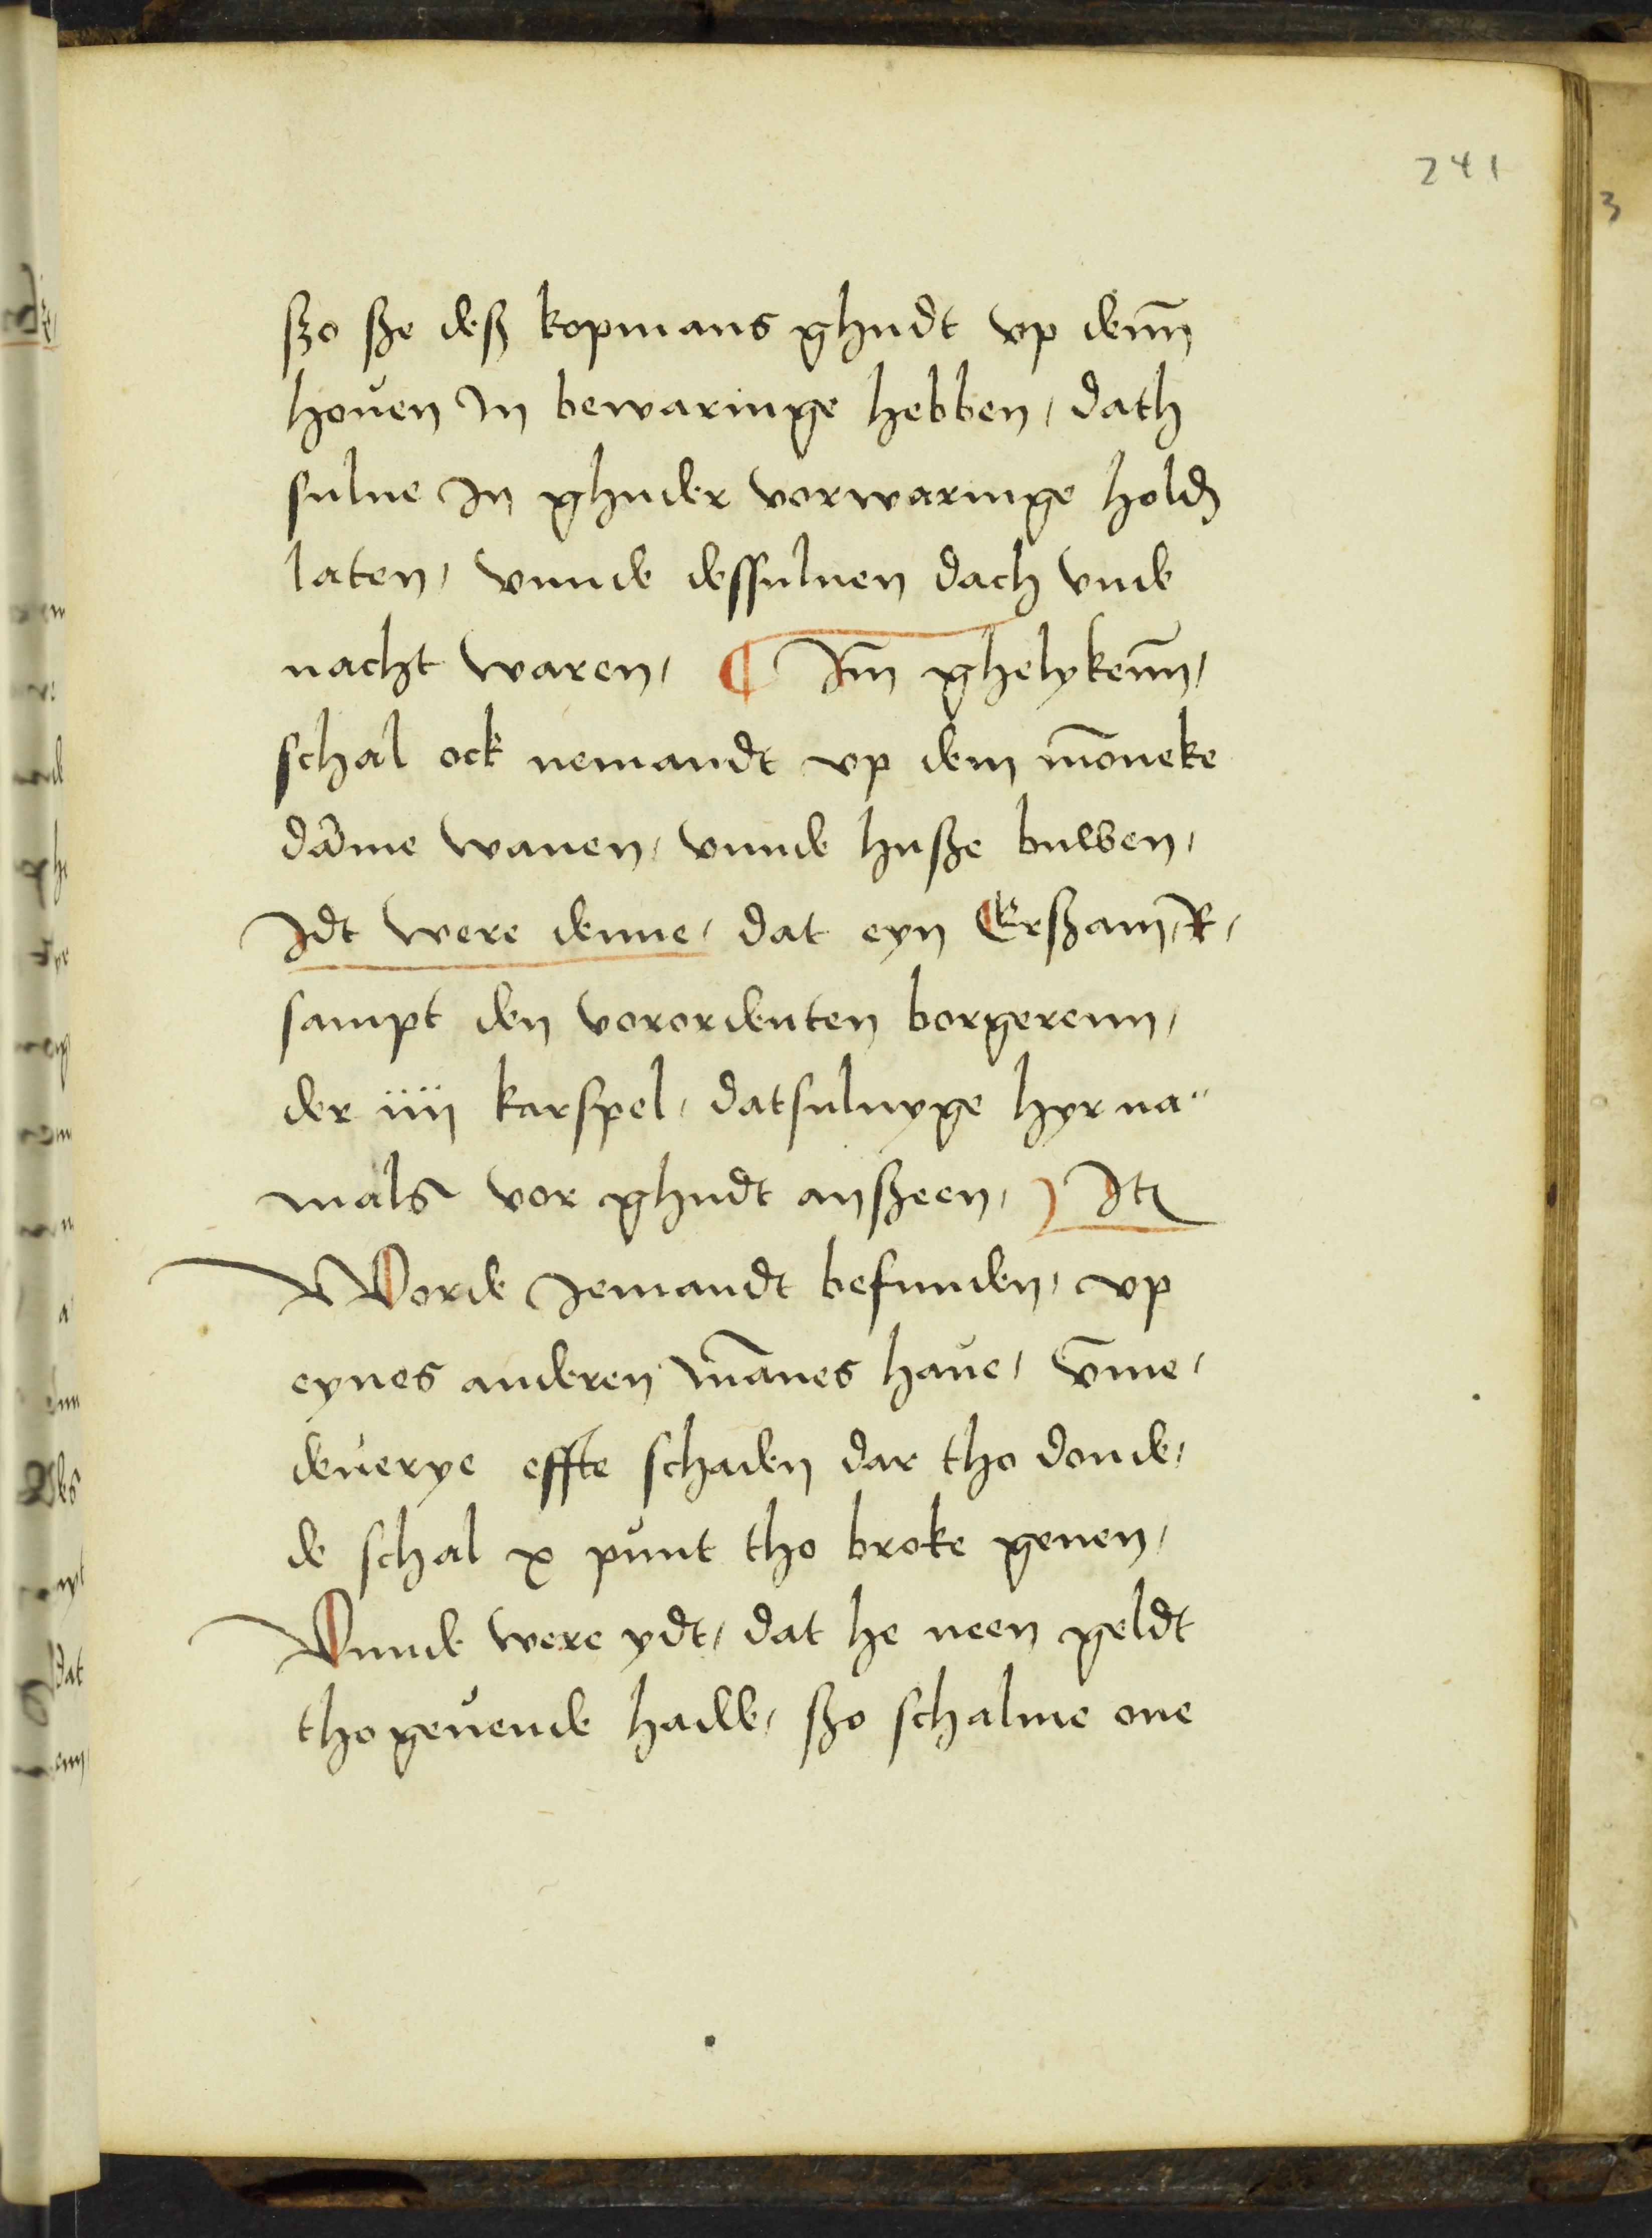 241
3
ßo ße deß kopmans ghudt vp denn̄
houen In bewaringe hebben, dath
sulue In ghuder vorwaringe hold̄
laten, vnnde dessuluen dach vnde
nacht waren, ¶ Im̄ ghelykenn̄,
schal ock nemandt vp dem mōneke
dām̄e wanen, vnnde huße buwen,
Idt were denne, dat eyn Erßam, R,
sampt den verordenten borgerenn,
der iiii karspel, datsuluyge hyr na"
mals vor ghudt anßeen, It̄
Worde Jemandt befunden, vp
eynes anderen mānes haue, vm̄e,
deuerye effte schaden dar tho donde,
de schal x punt tho broke geuen,
Vnnde were ydt, dat he neen geldt
tho geuende hadde, ßo schalme one